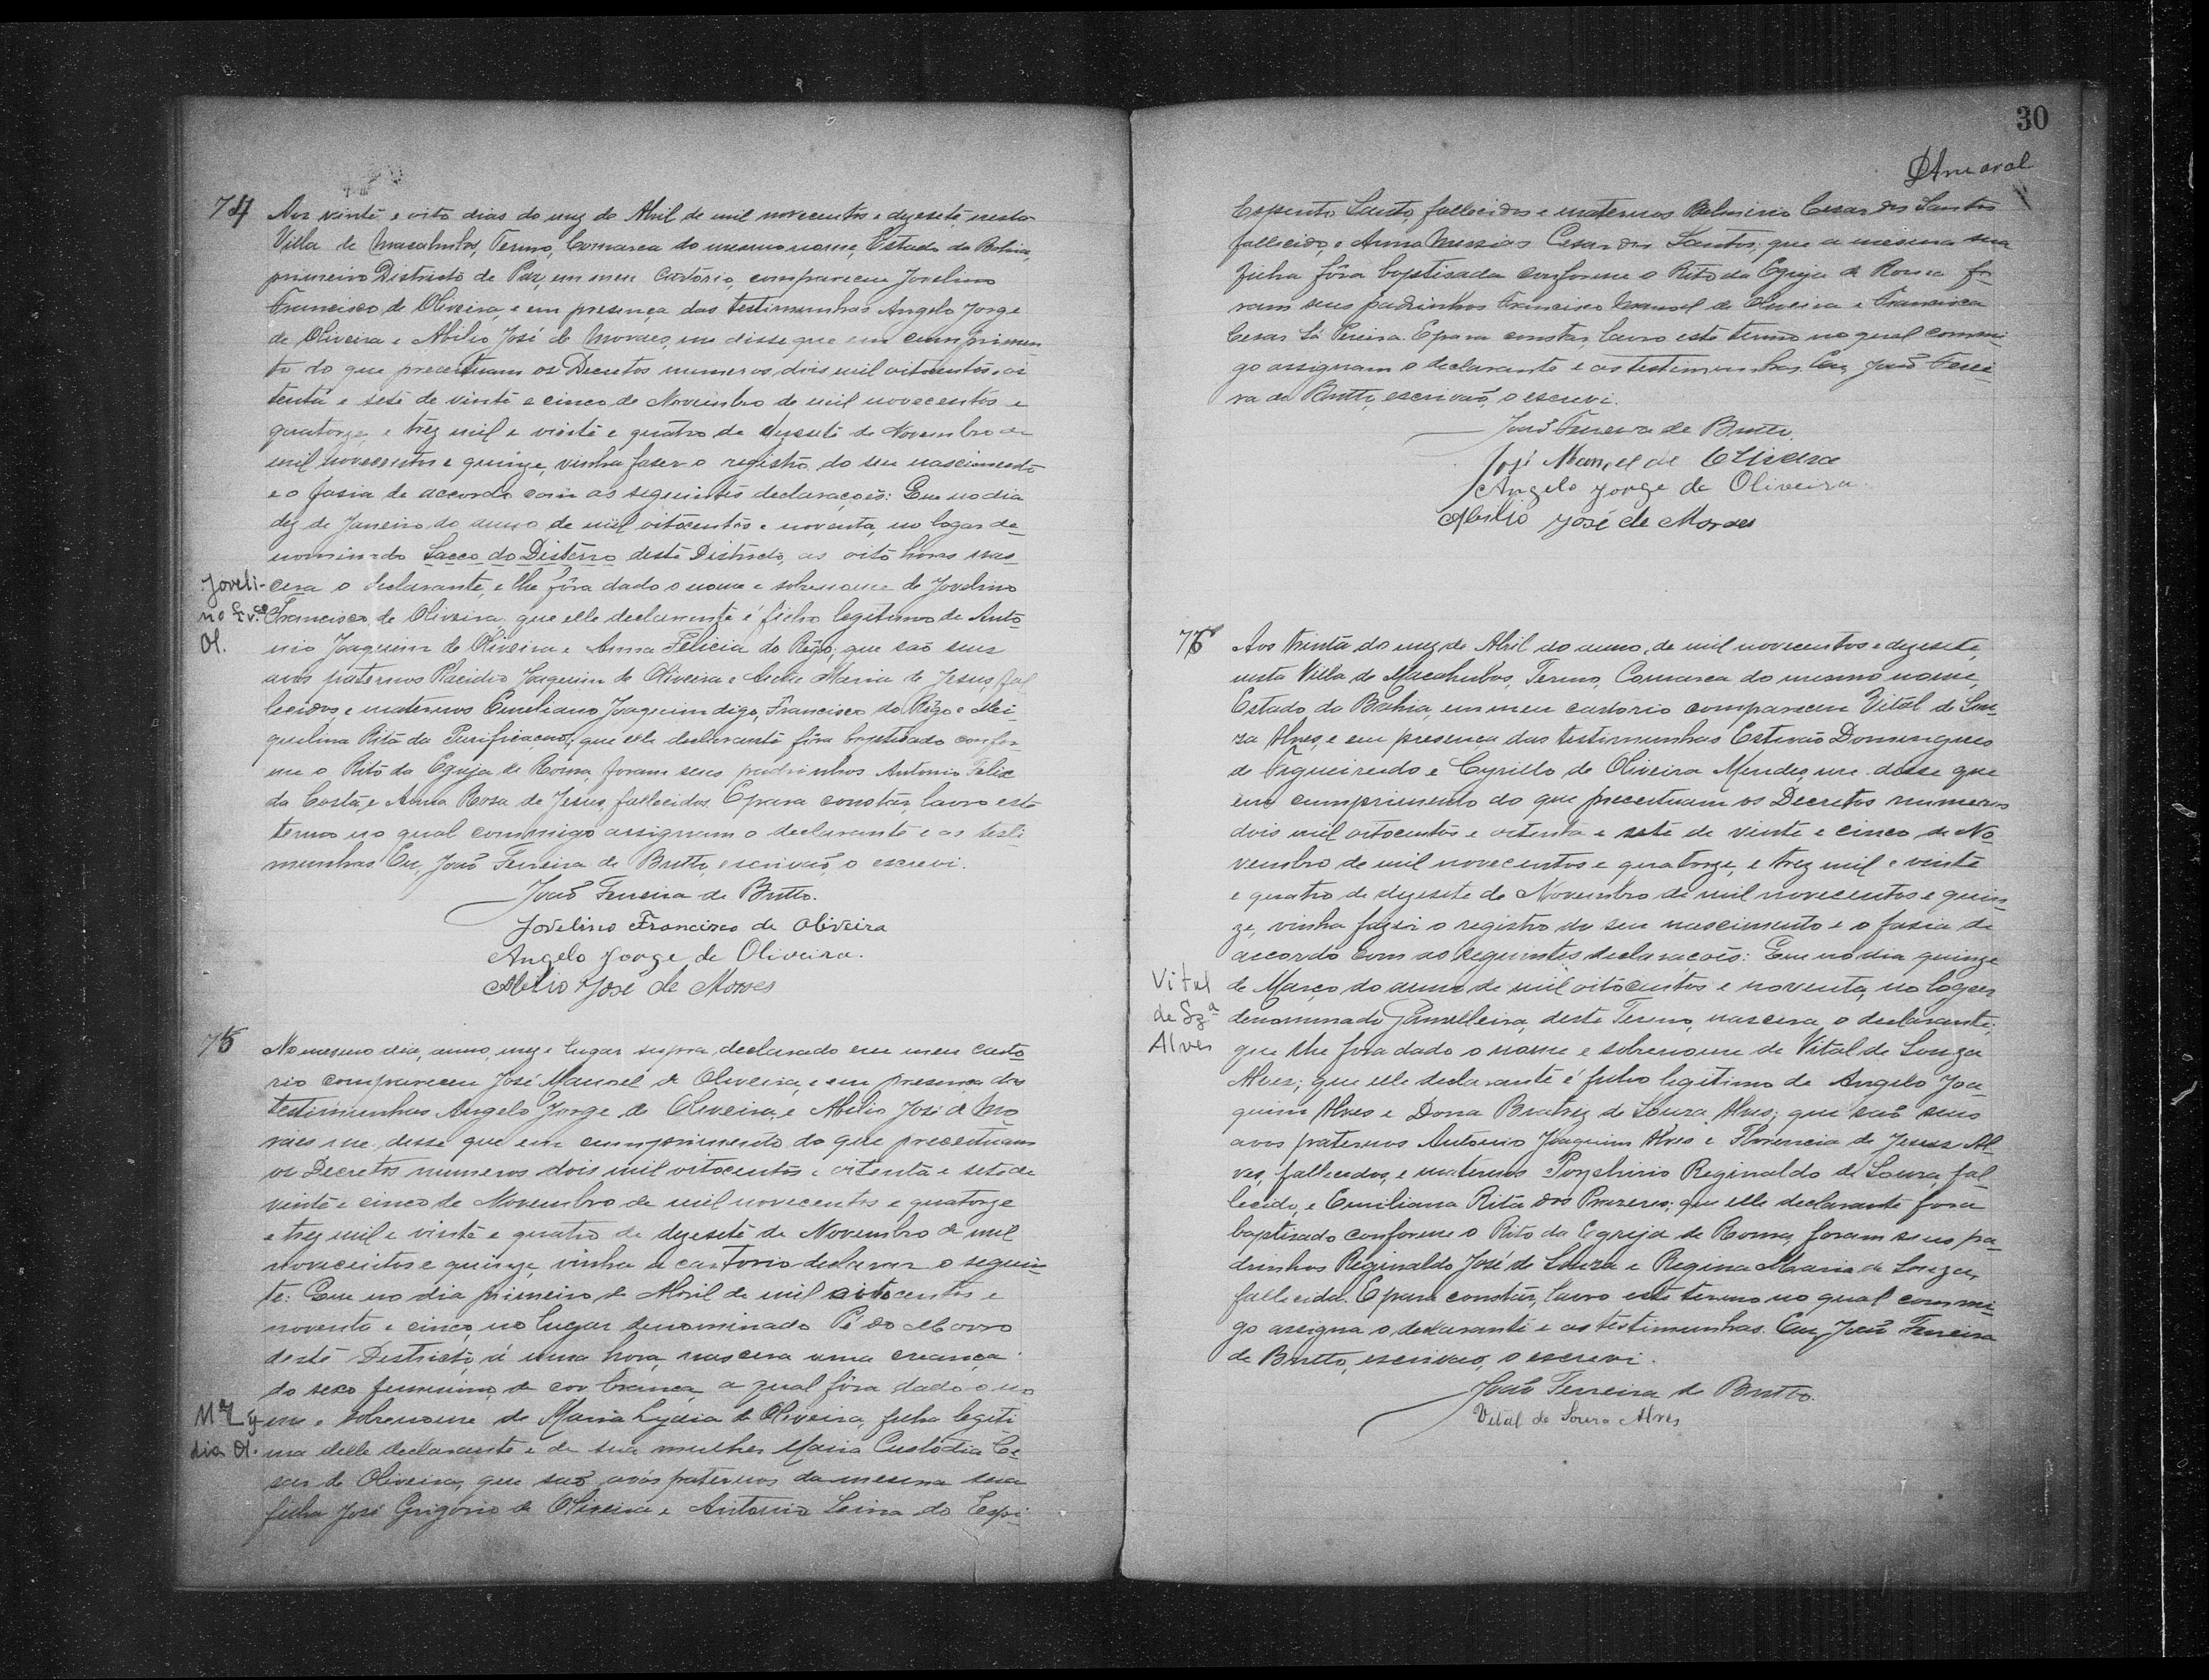 74
Aos vinte e oito dias do mez de Abril de mil novecentos e dezesete, nesta
Villa de Macahubas, Termo, Comarca do mesmo nome, Estado da Bahia,
primeiro Districto de Paz, em meu cartorio, compareceu Jovelino
Francisco de Oliveira, e em presença das testimunhas Angelo Jorge
de Oliveira e Abilio José de Moraes, me disse que em cumprimen
to do que preceituam os Decretos numeros dois mil oitocentos e oi
tenta e sete de vinte e cinco de Novembro de mil novecentos e
quatorze, e trez mil e vinte e quatro de dezesete de Novembro de
mil novecentos e quinze, vinha faser o registro do seu nascimento
e o fasia de accordo com as seguintes declarações: Que no dia
dez de Janeiro do anno de mil oitocentos e noventa, no logar de-
nominado Sacco do Disterro deste Districto, as oito horas nas-
Joveli-
no Fr.co
Ol.
cera o declarante, e lhe fôra dado o nome e sobrenome de Jovelino
Francisco de Oliveira, que elle declarante é filho legitimo de Anto-
nio Joaquim de Oliveira e Anna Felicia do Rêgo; que são seus
avós paternos Placidio Joaquim de Oliveira e Maria de Jesus, fal
lecidos, e maternos Emeliano Joaquim digo, Francisco do Rêgo e
Rita da Purificacão; que elle declarante fôra baptisado confor
me o Rito da Egreja de Roma, foram seus padrinhos Antonio Felix
da Costa, e Anna Rosa de Jesus, fallecidos. E para constar, lavro este
termo no qual commigo assignam o declarante e as testi
munhas. Eu, João Ferreira de Britto, escrivaõ, o escrevi.
João Ferreira de Britto.
Jovelino Francisco de Oliveira
Angelo Jorge de Oliveira.
Abilio José de Moraes
75
No mesmo dia, anno, mez e lugar supra declarado em meu carto
rio compareceu José Manoel de Oliveira, e em presença das
testimunhas Angelo Jorge de Oliveira, e Abilio José de Mo
raes me disse que em cumprimento do que preceituam
os Decretos numeros dois mil oitocentos e oitenta e sete de
vinte e cinco de Novembro de mil novecentos e quatorze
e trez mil e vinte e quatro de dezesete de Novembro de mil
novecentos e quinze, vinha a cartorio declarar o seguin-
te: Que no dia primeiro de Abril de mil oitocentos e
noventa e cinco, no lugar denominado Pé do Morro
deste Districto, á uma hora, nascera uma creança
do sexo feminino, de cor branca, a qual fôra dado o no
Mª Ly-
dia Ol.
me e sobrenome de Maria Lydia de Oliveira, filha legiti
ma delle declarante e de sua mulher Maria Custodia Ce
sar de Oliveira, que saõ avós paternos da mesma sua
filha José Grigorio de Oliveira e Antonia do Espi-
30
Amaral
Espirito Santo, fallecidos e maternos Belmiro Cesar dos Santos
fallecido, e Anna Messias Cesar dos Santos; que a mesma sua
filha fôra baptisada conforme o Rito da Egreja de Roma fo-
ram seus padrinhos Francisco Manoel de Oliveira e Francisca
Cesar Sá Pereira. E para constar, lavro este termo no qual commi
go assignam o declarante e as testimunhas. Eu, João Ferrei-
ra de Britto, escrivaõ, o escrevi.
João Ferreira de Britto.
José Manoel de Oliveira
Angelo Jorge de Oliveira.
Abilio José de Moraes
76
Aos trinta do mez de Abril do anno, de mil novecentos e dezesete,
nesta Villa de Macahubas, Termo, Comarca do mesmo nome,
Estado da Bahia, em meu cartorio compareceu Vital de Sou-
za Alves, e em presença das testimunhas Estevão Domingues
de Figueiredo e Cyrillo de Oliveira Mendes, me disse que
em cumprimento do que preceituam os Decretos numeros
dois mil oitocentos e oitenta e sete de vinte e cinco de No-
vembro de mil novecentos e quatorze, e trez mil e vinte
e quatro de dezesete de Novembro de mil novecentos e quin-
ze, vinha fazer o registro do seu nascimento e o fasia de
accordo com as seguintes declarações: Que no dia quinze
Vital
de Sz.ª
Alves
de Março do anno de mil oitocentos e noventa, no logar
denominado Gamelleira, deste Termo, nascera o declarante;
que lhe fora dado o nome e sobrenome de Vital de Souza
Alves; que elle declarante é filho legitimo de Angelo Joa-
quim Alves e Dona Beatriz de Souza Alves; que saõ seus
avos paternos Antonio Joaquim Alves e Florencia de Jesus Al-
ves, fallecidos, e maternos Porphirio Reginaldo de Souza, fal-
lecido, e Emiliana Rita dos Prazeres; que elle declarante fora
baptisado conforme o Rito da Egreja de Roma, foram seus pa-
drinhos Reginaldo José de Souza e Regina Maria de Souza,
fallecida. E para constar, lavro este termo no qual commi-
go assigna o declarante e as testimunhas. Eu, João Ferreira
de Britto, escrivaõ, o escrevi.
João Ferreira de Britto.
Vital de Souza Alves